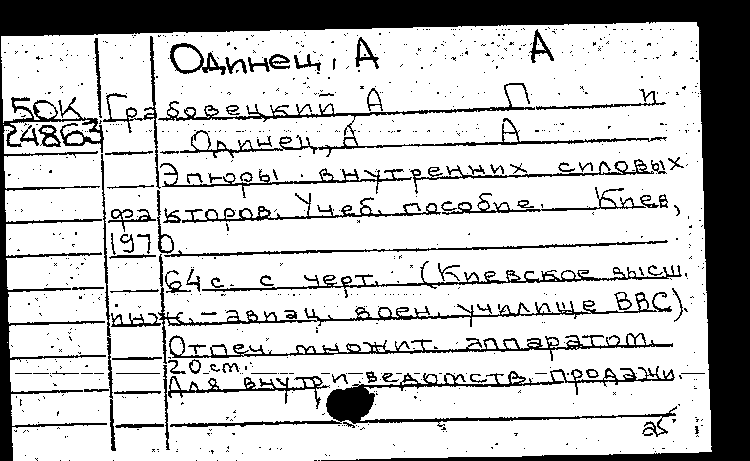 Одинец, А А
50К Грабовецкий А П и
24863 Одинец, А А
Эпюры внутренних силовых
факторов. Учеб. пособие. Киев,
1970.
64с. с черт. (Киевское высш.
инж.-авиац. воен. училище ВВС).
Отпеч. множит. аппаратом.
20 cm.
Для внутриведомств. продажи.